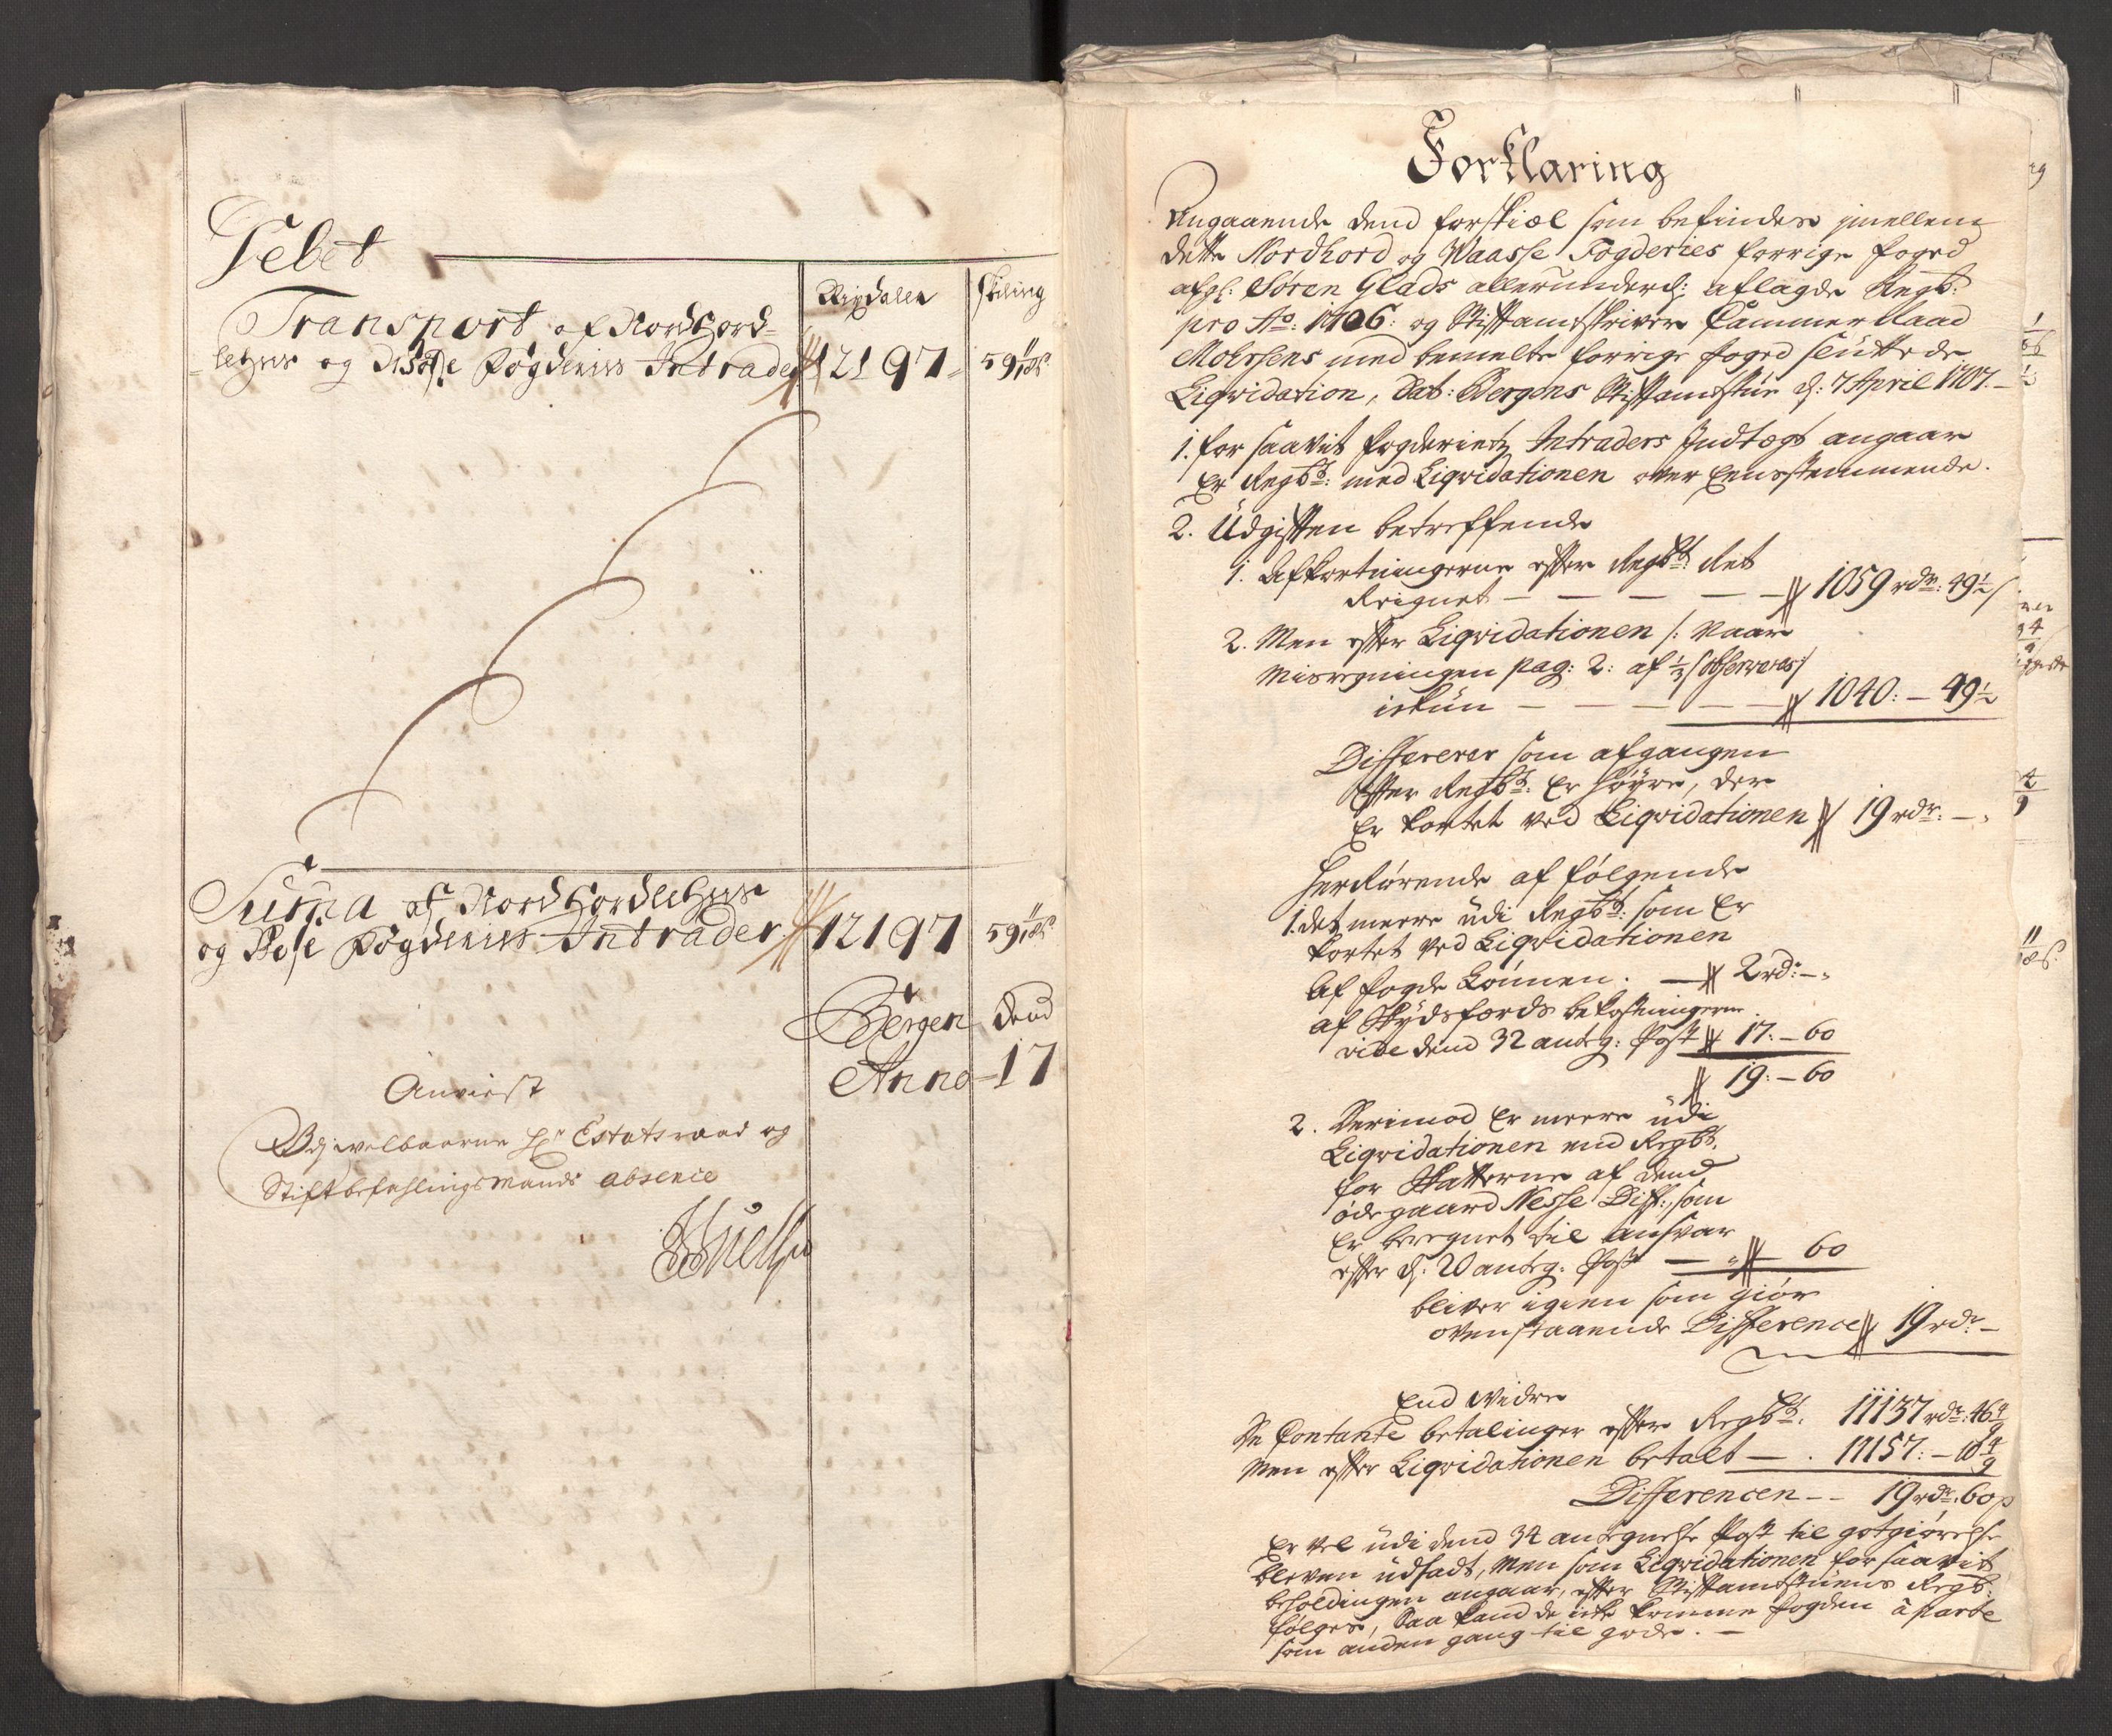 Debet
Rixdaler
skiling
Transport af Nordhord-
lehns og Wosse Fogderies Intrader 12197 59 11/18 s
Suma af Nordhordlehns
og Wosse Fogderies Intrader 12197 59 11/18 s
Bergen dend
Anno 17
Anviist
Udj welbaarne Hr Estatsraad og
Stiftbefahlingsmands absence
Forklaring
Angaaende dend forskiæl som befindes imellem
dette Nordhord og Waasse Fogderies forrige foged
afgl: Søren Glads allerunderd: aflagde Regb:
pro Ao: 1706: og Stiftamtskriver Cammer Raad
Mohrsens med bemelte forrige foged sluttede
Liqvidation, Dat: Bergens Stiftamtstue d: 7 April 1707.
1. for saavit fogderietz Intraders Indtægt angaar
Er Regbt: med Liqvidationen over Eensstemmende.
2. Udgiften betreffende
1. Afkortningerne efter Regbt:
Reignet - - - - - 1059 rdr: 49 1/2 s
2. Men efter Liqvidationen /: naar
Misregningen pag: 2: af 1/2 s observeres :/
ickun - - - - - 1040: - 49 1/2
Differerer som afgangen
efter Regbt: Er høyre, der
Er kortet ved Liqvidationen 19 rdr: -
Herrørende af følgende
1. det meere udi Regbt: som Er
kortet ved Liqvidationen
Af fogde Lønnen. - 2 rd: -
af Skydsfærds bekostningerne
vide dend 32 anteg: Post 17: - 60
19: - 60
2. Derimod Er meere udi
Liqvidationen end Regbt.
for Skatterne af dend
ødegaard Nesse Diff:, som
Er beregnet til ansvar
efter d: 20 anteg: Post - 60
bliver igien som giør
ovenstaaende Difference 19 rdr -
End Widre
De Contante betalinger efter Regbt: 11137 rdr: 46 4/9
Men efter Liqvidationen betalt - 11157: - 10 4/9
Differencen - - 19 rdr: 60 s
Er vel udi dend 34 antegnelse Post til gotgiørelse
bleven udsadt, Men som Liqvidationen for saavit
beholdingen angaar, efter Stiftamtstuens Regb:
følges, Saa kand de icke komme fogden à parte
som anden gang til gode. -